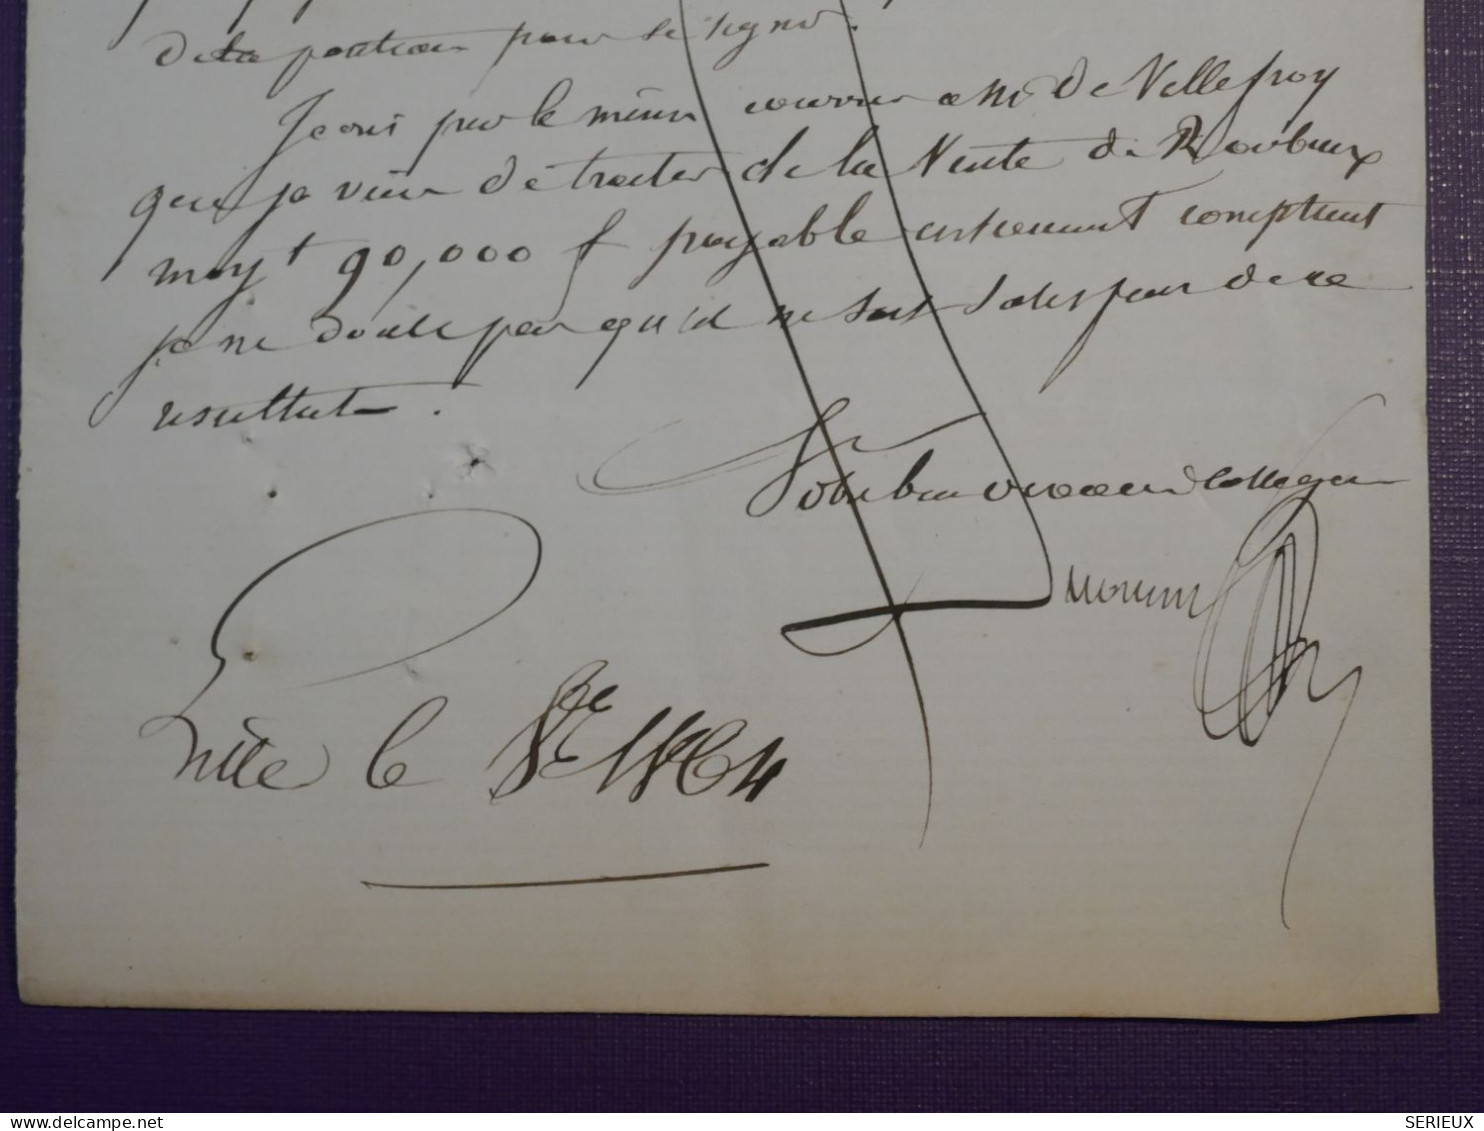 de la portion pour se signer.
J'ecris par le même courrier a Mr De Villefroy
que je viens de traiter de la Vente de Roubaix
moyt 90,000 f payable comptant
je ne doute pas qu'il ne soit satisfait de ce
resultat.
Votre bien collegue
Lille le 8bre 1864
www.delcampe.net
SERIEUX